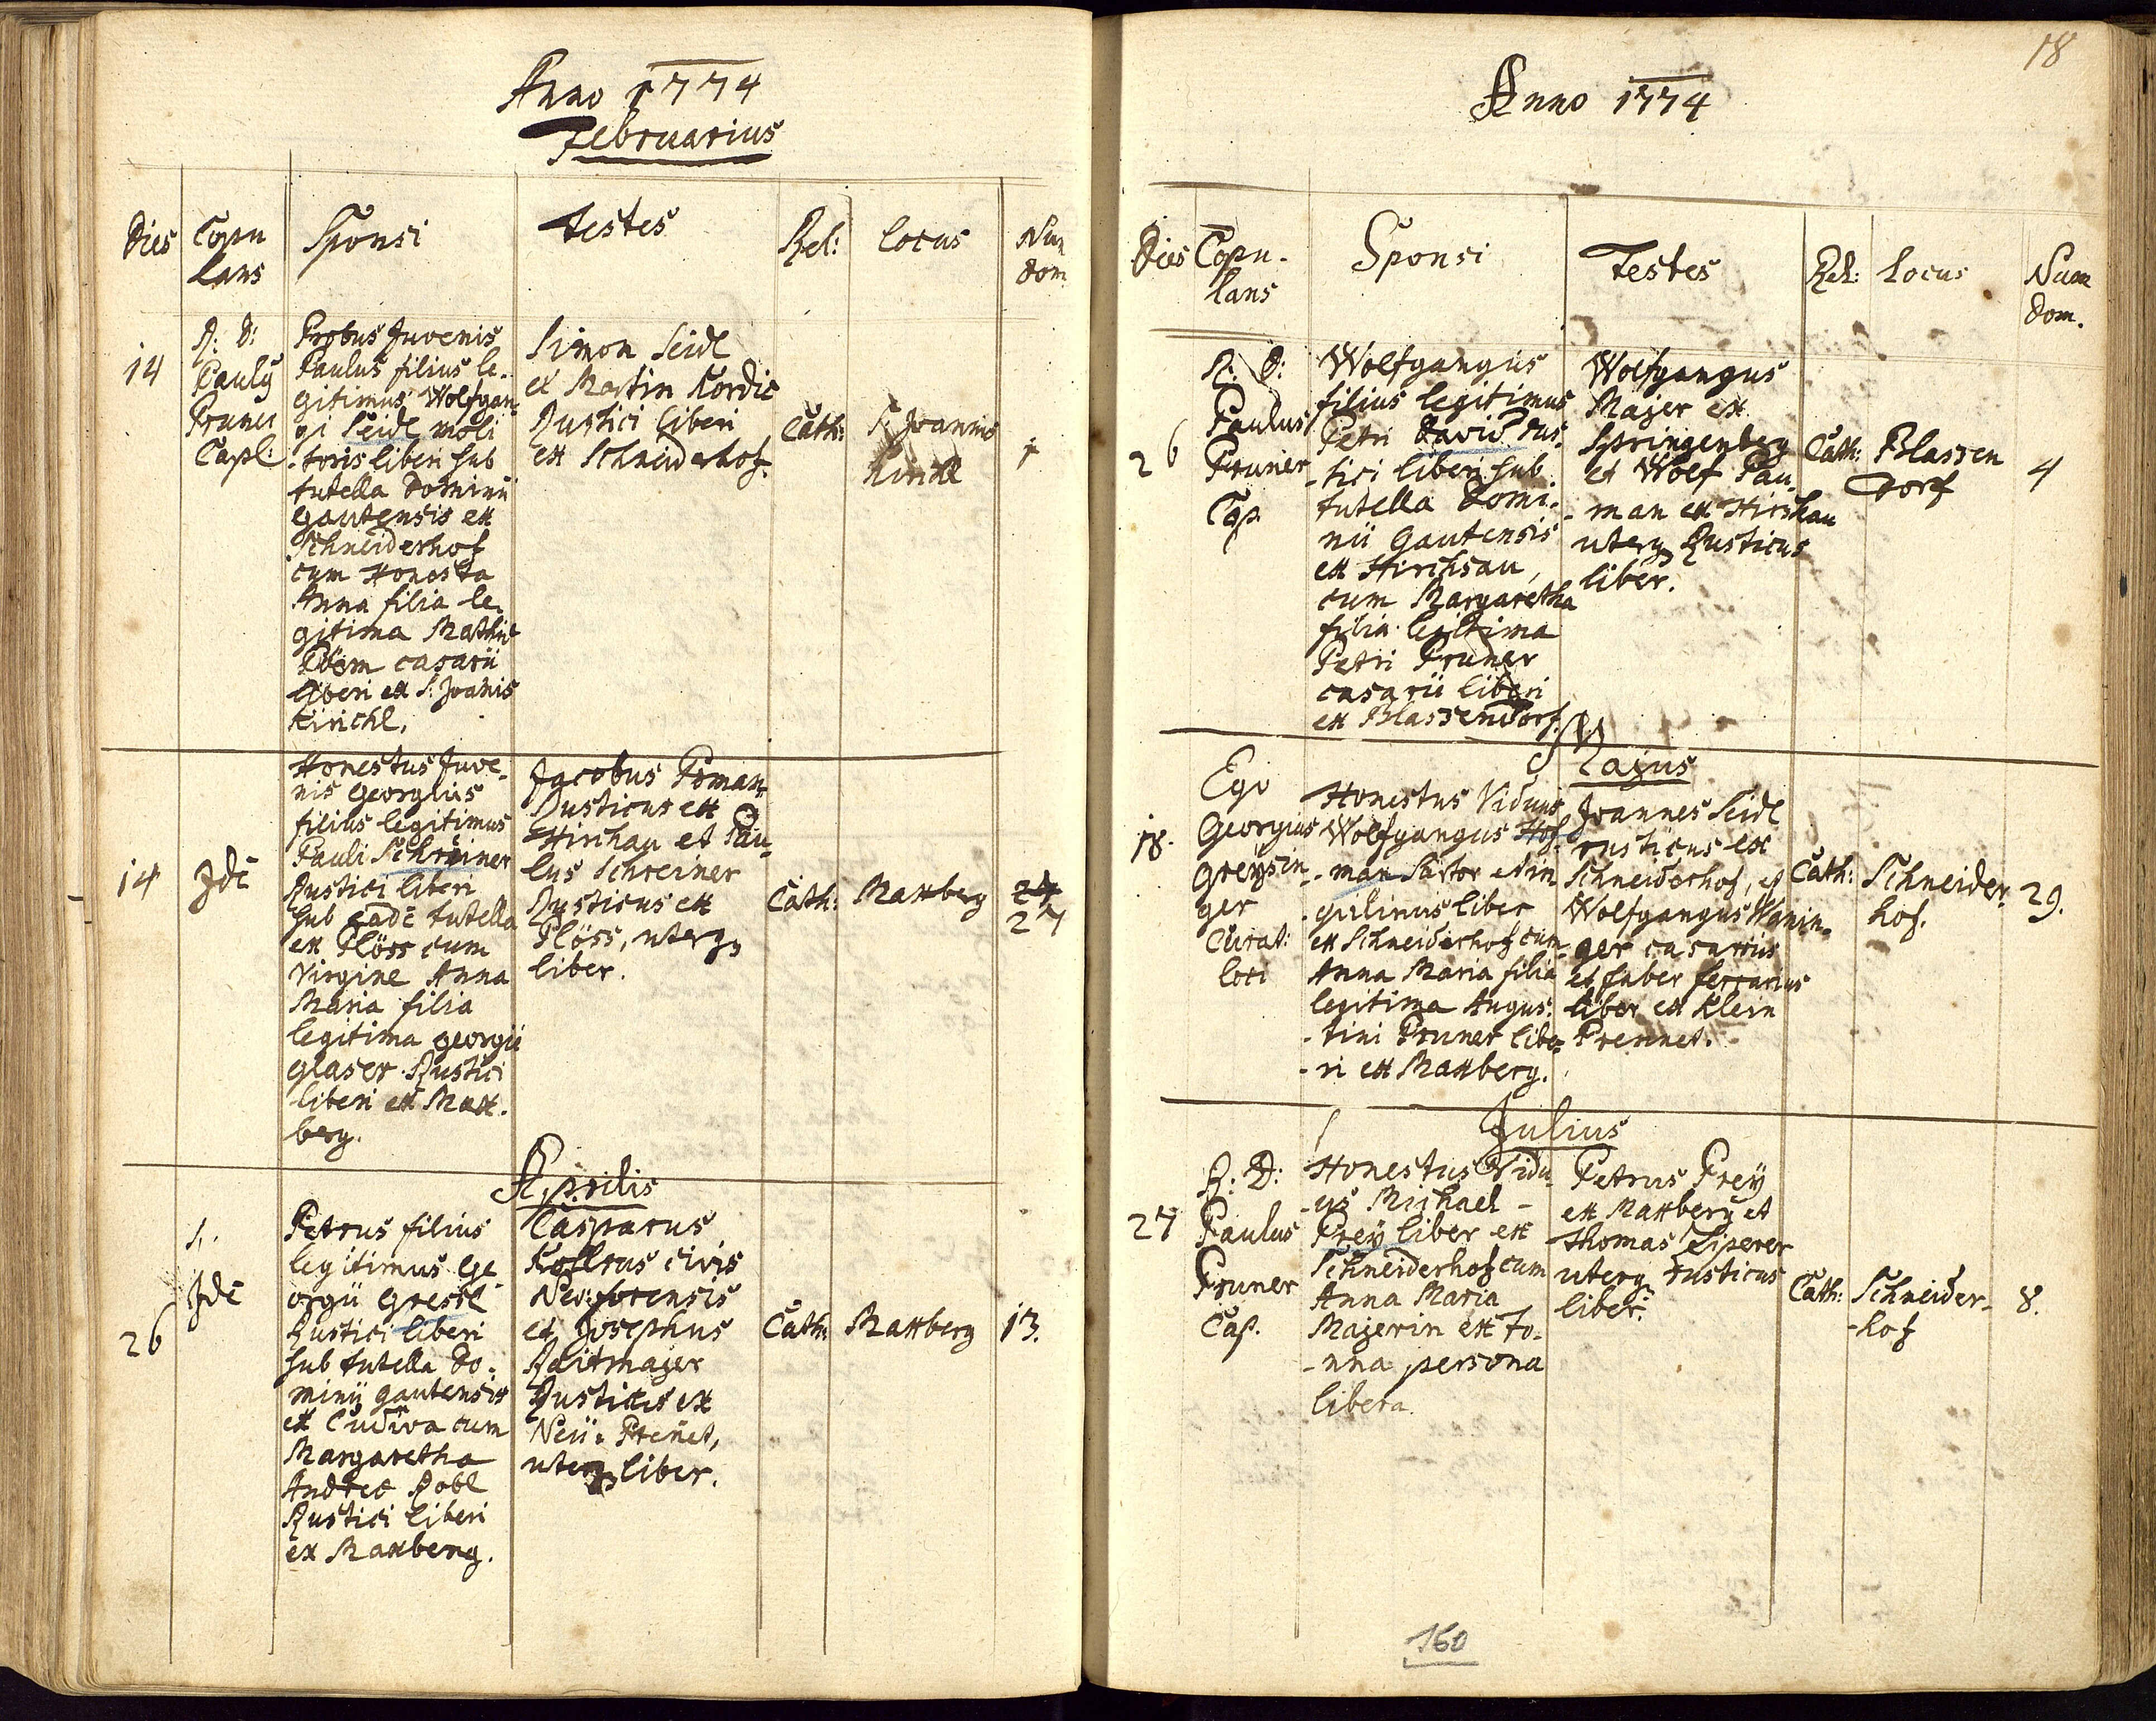 Anno 1774
Februarius
Dies
Copu
lans
Sponsi
Testes
Rel:
Locus
Num
dom
14
R: D:
Pauly
Pruner
Capl:
Probus Juvenis
Paulus filius le-
gitimus Wolfgan-
gi Seidl moli
-toris liberi sub
tutella Dominii
Gautensis ex
Schneiderhof
cum Honesta
Anna filia le-
gitima Mathie
casarii
liberi ex S: Joanis
Kirichl.
Simon Seidl
et Martin Kordic
Rustici liberi
ex Schneiderhof.
Cath:
S. Joannis
Kirichl
14
Jdē
Honestus Juve-
nis Georgius
filius legitimus
Pauli Schreiner
Rustici liberi
sub eadē tutella
ex Plöss cum
Virgine Anna
Maria filia
legitima Georgii
Glaser Rustici
liberi ex Max-
berg.
Jacobus Poman
Rusticus ex
Hirschau et Pau-
lus Schreiner
Rusticus ex
Plöss, uterq
liber.
Cath:
Maxberg
27
Aprilis
26
Jdē
Petrus filius
legitimus Ge-
orgii Gressl
Rustici liberi
sub tutella Do-
minij Gautensis
ex Cudiva cum
Margaretha
Andreæ Robl
Rustici liberi
ex Maxberg.
Casparus
civis
Neuforensis
et Josephus
Reitmajer
Rusticus ex
Neü: Preñet,
uterq liber.
Cath:
Maxberg
13.
18
Anno 1774
Dies
Copu-
lans
Sponsi
Testes
Rel:
Locus
Num
Dom.
26
R: D:
Paulus
Pruner
Cap.
Wolfgangus
filius legitimus
Petri David rus-
-tici liberi sub
tutella Domi-
nii Gautensis
ex Hirschau,
cum Margaretha
filia legitima
Petri Pruner
casarii liberi
ex Blassendorf.
Wolfgangus
Majer ex
Springenberg
et Wolf Pau-
-man ex Hirschau
uterq Rusticus
liber.
Cath:
Blassen
dorf
4
Majus
18.
Ego
Georgius
Greysin-
ger
Curat:
loci
Honestus Viduus
Wolfgangus Hof-
-man Sartor et in-
-quilinus liber
ex Schneiderhof cum
Anna Maria filia
legitima Augus-
-tini Pruner libe-
-ri ex Maxberg.
Joannes Seidl
rusticus ex
Schneiderhof, et
Wolfgangus Wanin-
-ger casarius
et faber ferrarius
liber ex Klein
Prennet.
Cath:
Schneider-
hof.
29.
Julius
27
R: D:
Paulus
Pruner
Cap.
Honestus Vidu-
-us Michael
Prey liber ex
Schneiderhof cum
Anna Maria
Majerin ex Fo-
-nna persona
libera.
Petrus Prey
ex Maxberg et
Thomas Ziperer
uterq rusticus
liber.
Cath:
Schneider-
-hof
8.
160